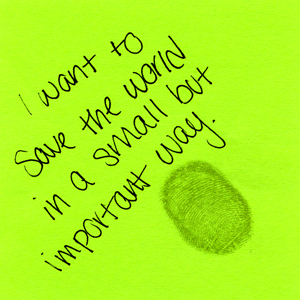 I want to
Save the world
in a small but
important way.